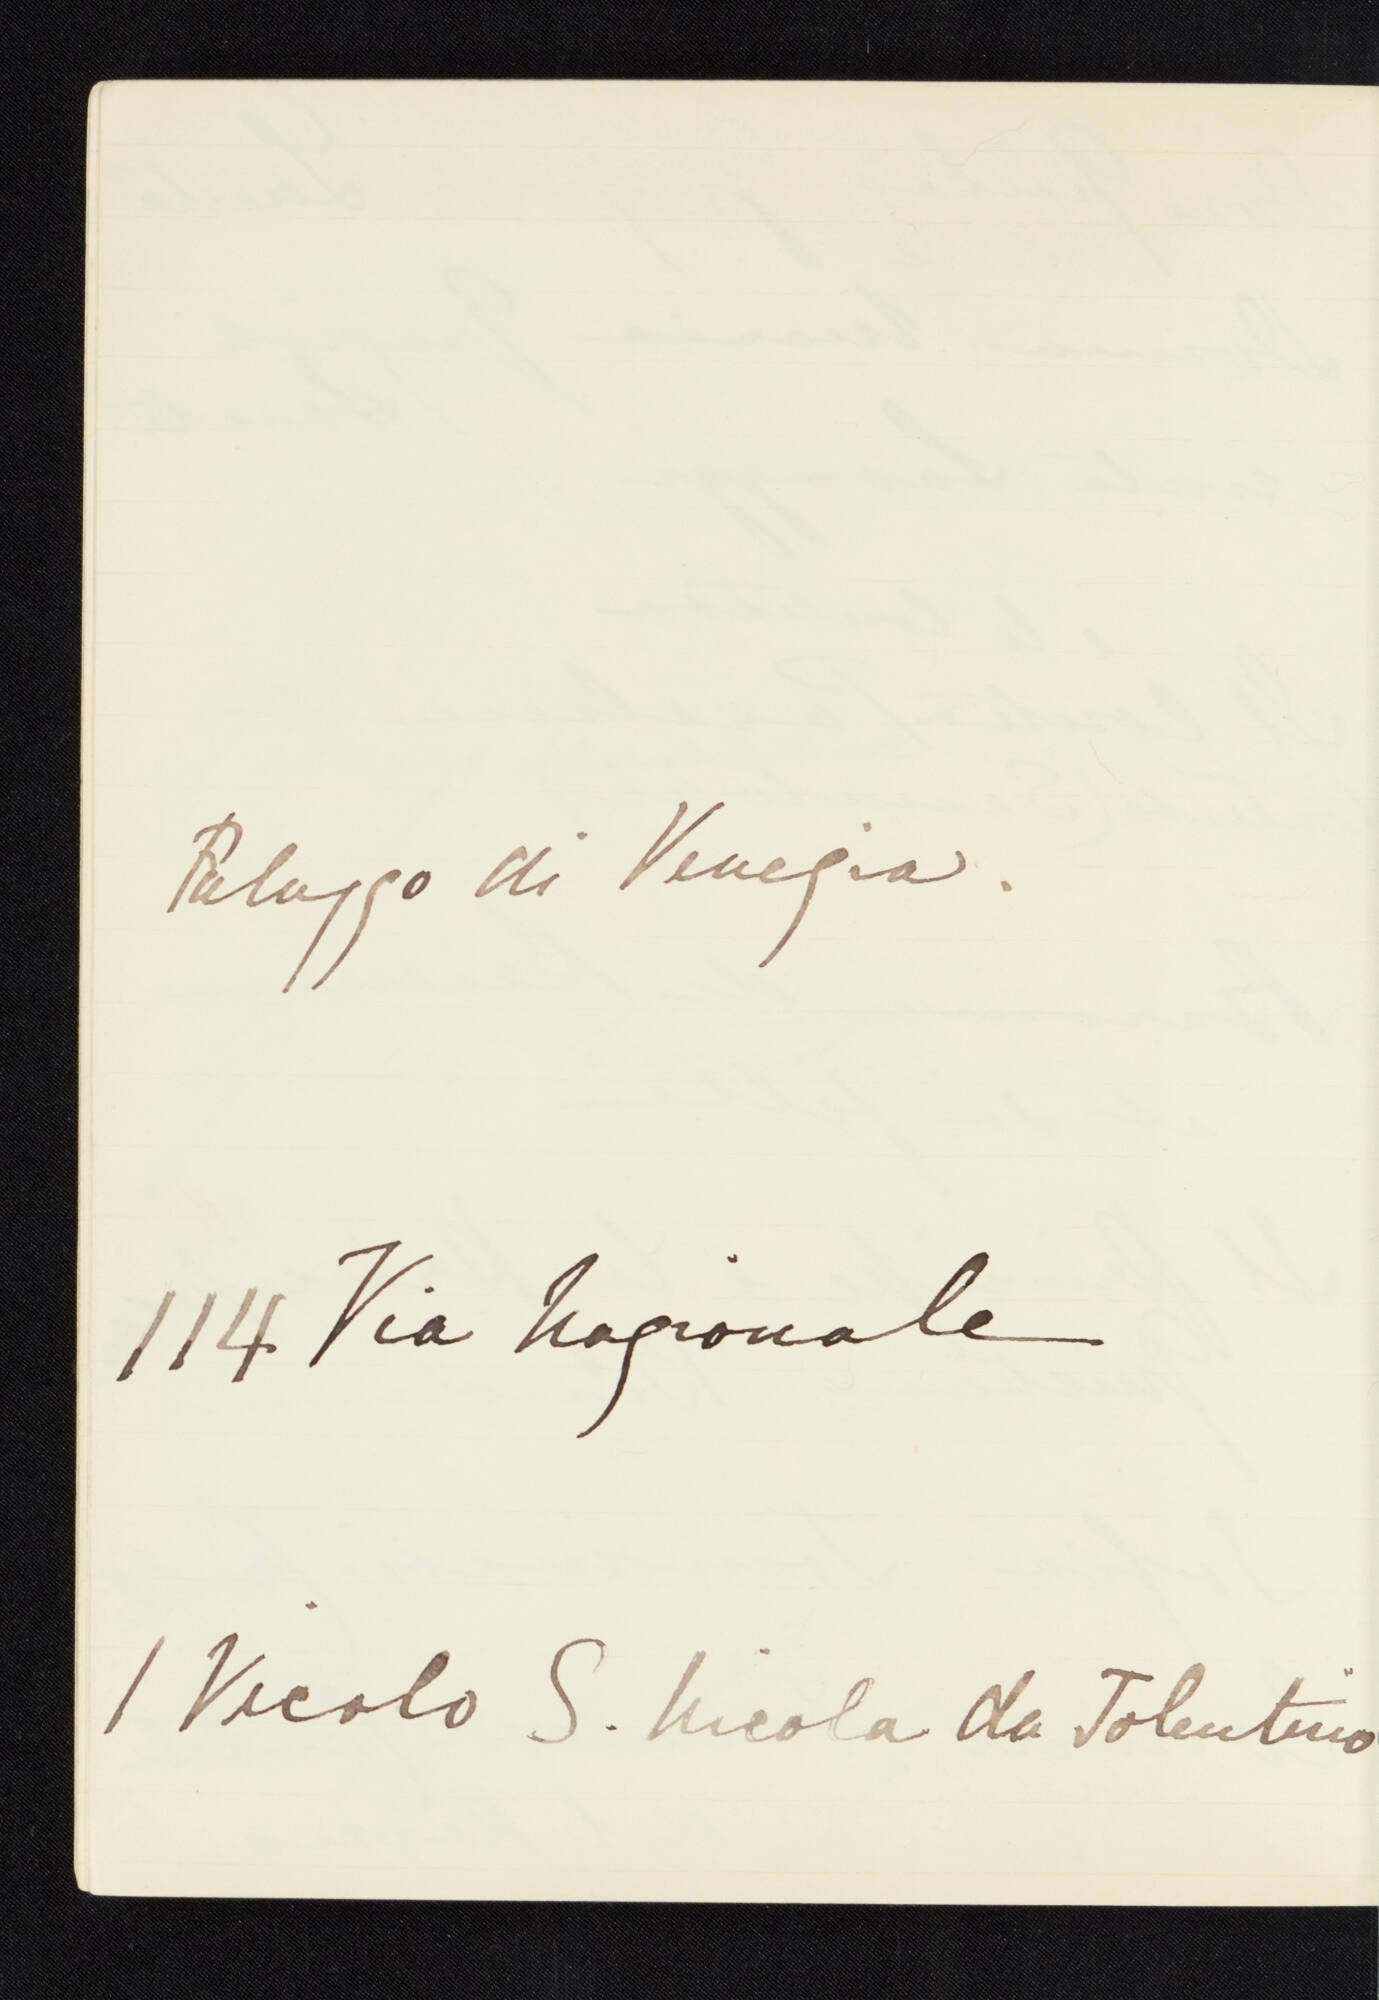 Palazzo di Venezia.
114 Via Nazionale
1 Vicolo S. Nicola da Tolentino